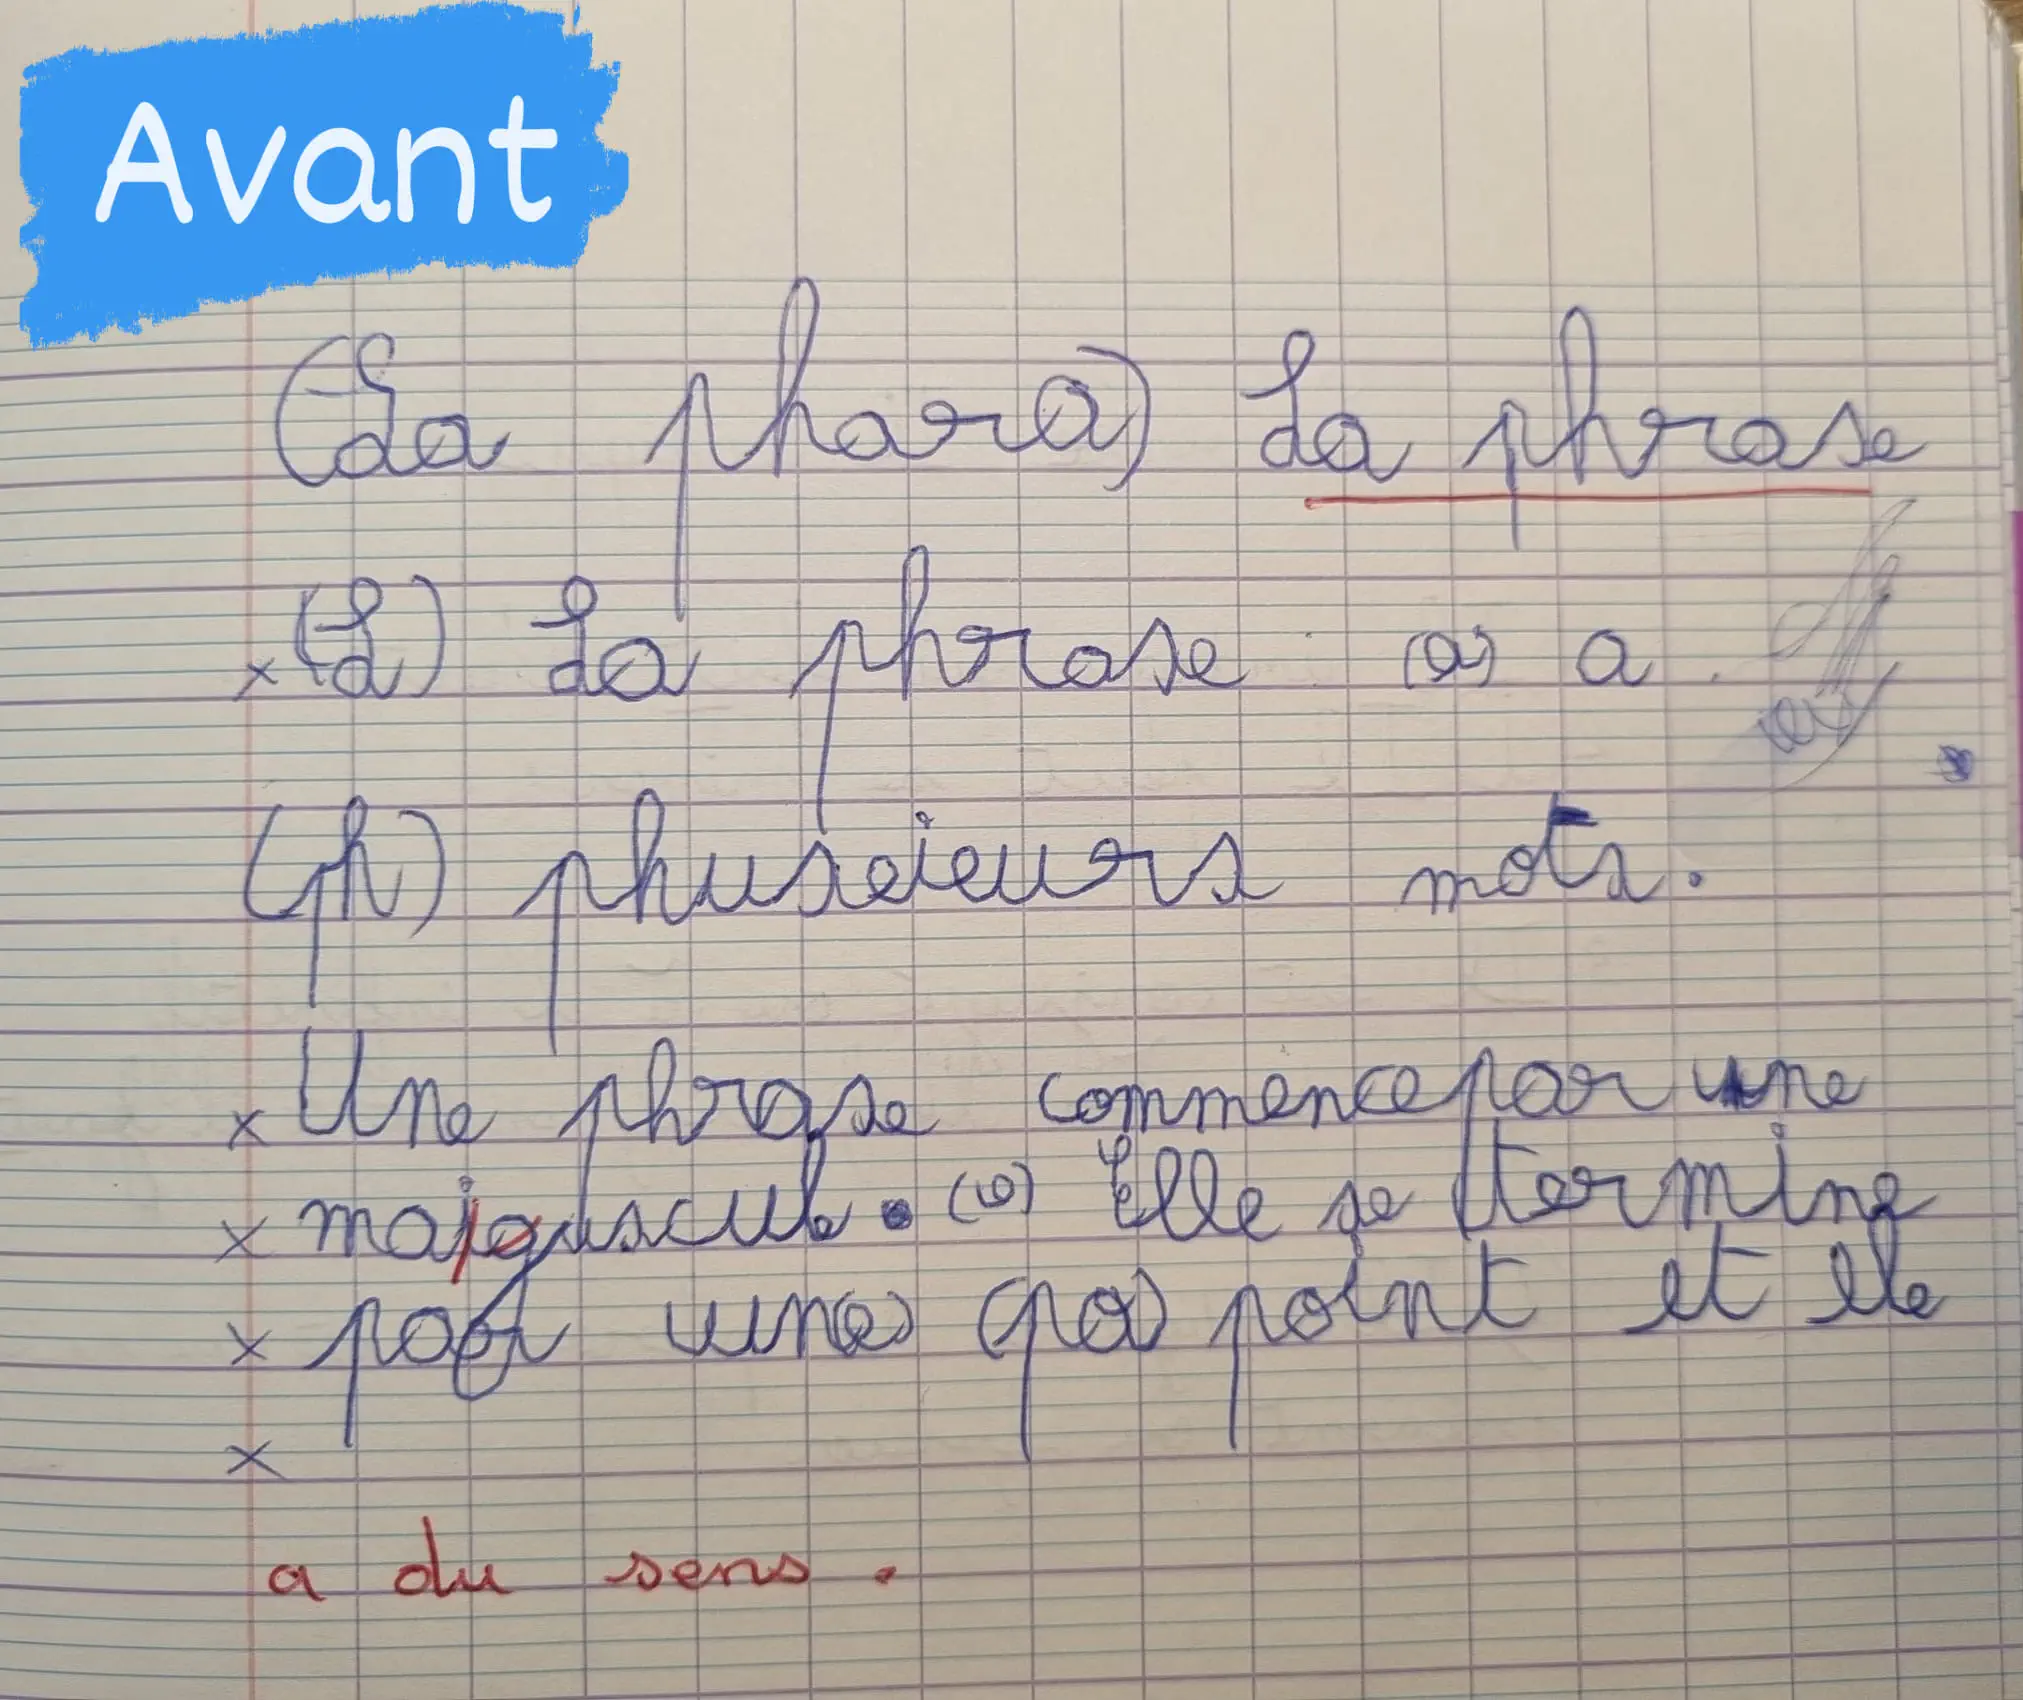 Avant
(La phara) La phrase
x (L) La phrase (a) a
(ph) phuseieurs mots.
x Une phrase commence par une
x majuscule. (e) Elle se termine
x par une (pa) point et elle
x
a du sens.